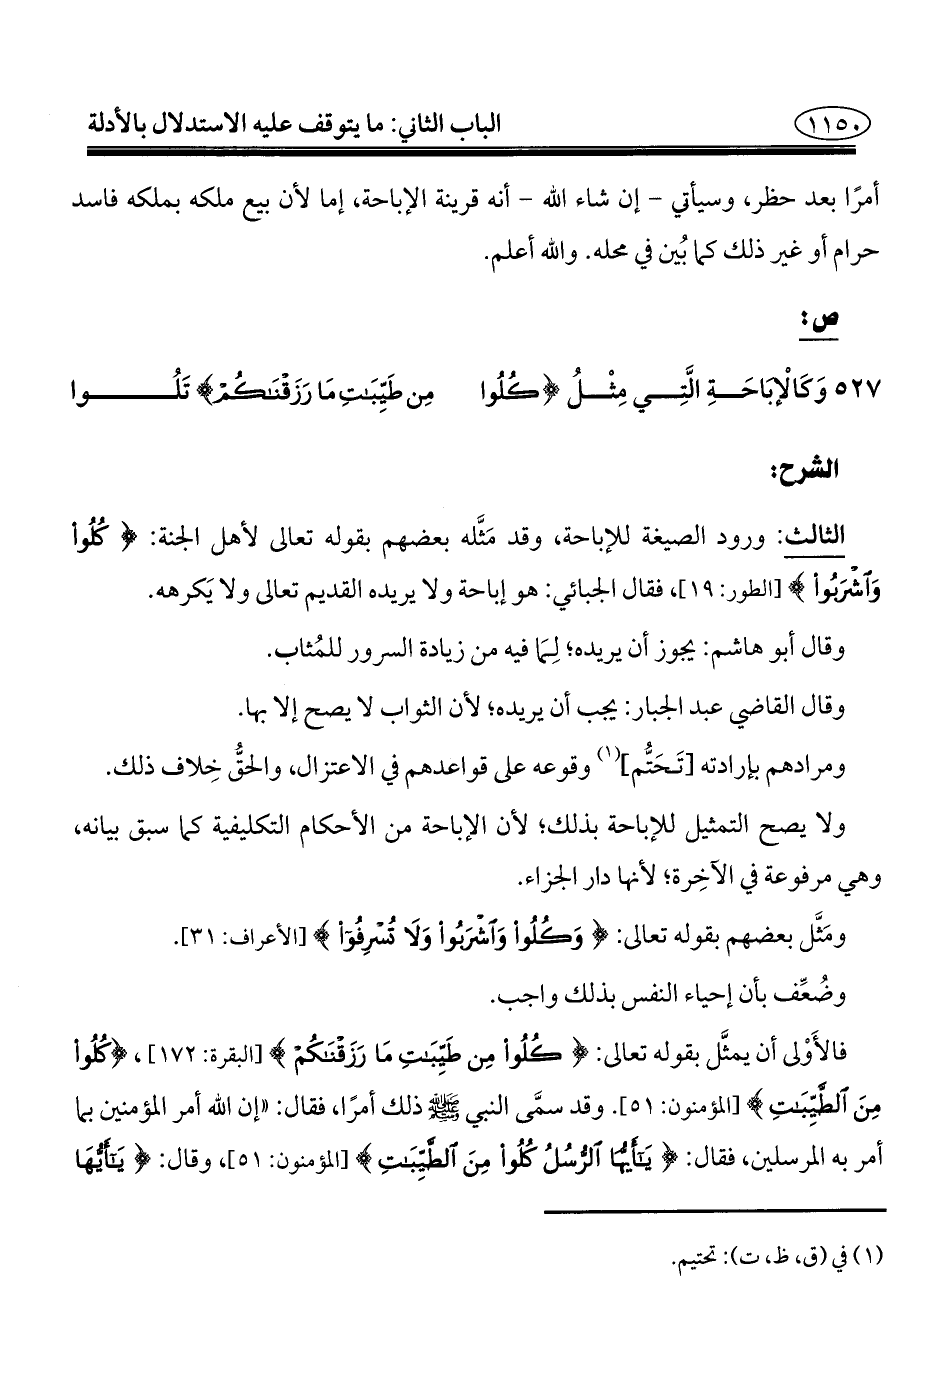 ١١٥٠ الباب الثاني: ما يتوقف عليه الاستدلال بالأدلة
أمرًا بعد حظر، وسيأتي - إن شاء الله - أنه قرينة الإباحة، إما لأن بيع ملكه بملكه فاسد
حرام أو غير ذلك كما بُين في محله. والله أعلم.
ص:
٥٢٧ وَكَالْإبَاحَـــةِ الَّتِـــي مِثْـــلُ ﴿كُلُوا مِن طَيِّبَٰتِ مَا رَزَقْنَٰكُمْ﴾ تَلُـــــــوا
الشرح:
الثالث: ورود الصيغة للإباحة، وقد مَثَّله بعضهم بقوله تعالى لأهل الجنة: ﴿ كُلُوا۟
وَٱشْرَبُوا۟ ﴾ [الطور: ١٩]، فقال الجبائي: هو إباحة ولا يريده القديم تعالى ولا يَكرهه.
وقال أبو هاشم: يجوز أن يريده؛ لِمَا فيه من زيادة السرور للمُثاب.
وقال القاضي عبد الجبار: يجب أن يريده؛ لأن الثواب لا يصح إلا بها.
ومرادهم بإرادته [تَحَتُّم](١) وقوعه على قواعدهم في الاعتزال، والحقُّ خِلاف ذلك.
ولا يصح التمثيل للإباحة بذلك؛ لأن الإباحة من الأحكام التكليفية كما سبق بيانه،
وهي مرفوعة في الآخِرة؛ لأنها دار الجزاء.
ومَثَّل بعضهم بقوله تعالى: ﴿ وَكُلُوا۟ وَٱشْرَبُوا۟ وَلَا تُسْرِفُوٓا۟ ﴾ [الأعراف: ٣١].
وضُعِّف بأن إحياء النفس بذلك واجب.
فالأَوْلى أن يمثَّل بقوله تعالى: ﴿ كُلُوا۟ مِن طَيِّبَٰتِ مَا رَزَقْنَٰكُمْ ﴾ [البقرة: ١٧٢] ، ﴿كُلُوا۟
مِنَ ٱلطَّيِّبَٰتِ ﴾ [المؤمنون: ٥١]. وقد سمَّى النبي ﷺ ذلك أمرًا، فقال: «إن الله أمر المؤمنين بما
أمر به المرسلين، فقال: ﴿ يَٰٓأَيُّهَا ٱلرُّسُلُ كُلُوا۟ مِنَ ٱلطَّيِّبَٰتِ ﴾ [المؤمنون: ٥١]، وقال: ﴿ يَٰٓأَيُّهَا
(١) في (ق، ظ، ت): تحتيم.